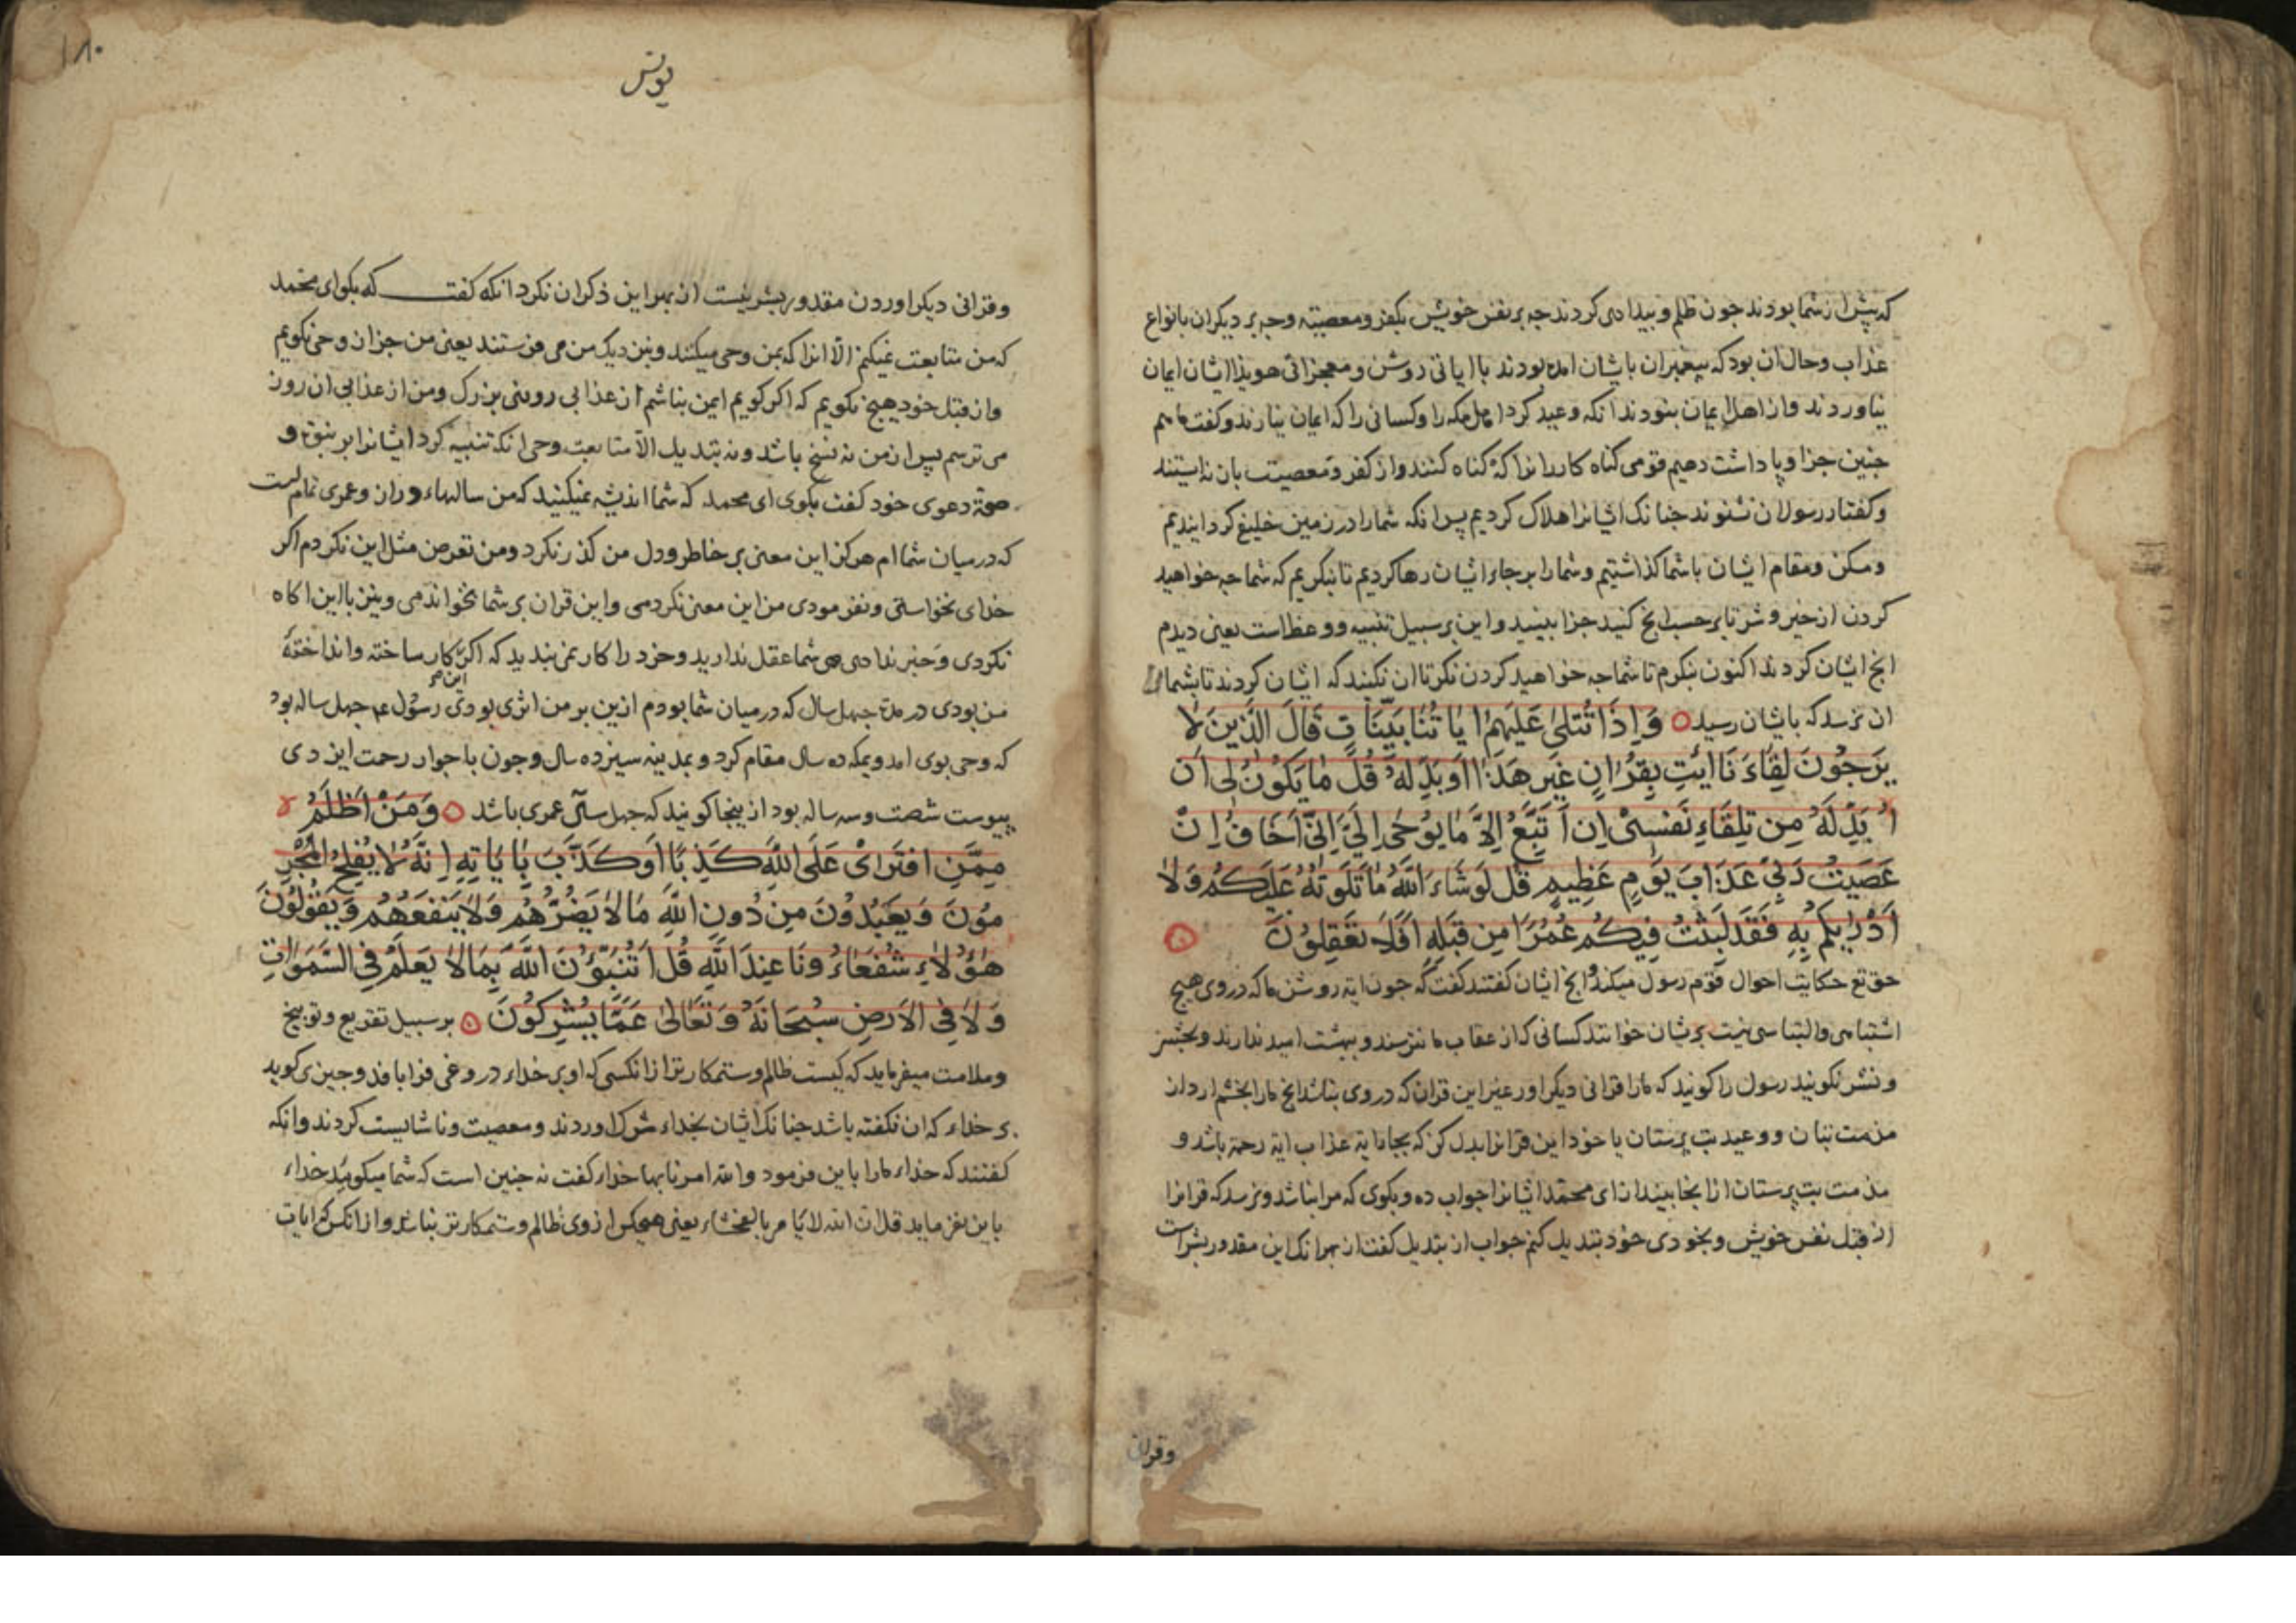 که پیش از شما بودند جون ظلم و بیدادی کردند جه بر نفس خویش بکفر و معصیته وجه بر دیکران بانواع
عذاب وحال ان بود که پیغمبران باشان امده بودند باایاتی روشن و معجزاتی هویدا ایشان ایمان
نیاوردند واز اهل ایمان نبودند انکه وعید کرد اهل مکه را وکسانی را که ایمان نیارند وکفت ما هم
جنین جزا و پاداشت دهیم قومی کناه کارانرا که کناه کنند واز کفر و معصیت بان نه ایستند
وکفتار رسولان نشنوند جنانک ایشانرا هلاک کردیم پس انکه شمارا در زمین خلیفه کردانیدیم
ومسکن ومقام ایشان باشما کذاشتیم وشمارا بر جاء ایشان رها کردیم تا بنکریم که شما جه خواهید
کردن از خیر و شر تا بر حسب انج کنید جزا بینید واین بر سبیل تنبیه ووعظ است یعنی دیدم
انج ایشان کردند اکنون بنکرم تا شما جه خواهید کردن نکر تا ان نکنید که ایشان کردند تا بشما
ان نرسد که باشان رسید وَاِذَا تُتْلیٰ عَلَیْهِمْ اٰیَاتُنَا بَیِّنَاتٍ قَالَ الَّذِینَ لَا
یَرْجُونَ لِقَاءَنَا ائْتِ بِقُرْاٰنٍ غَیْرِ هٰذَا اَوْ بَدِّلْهُ قُلْ مَا یَکُونُ لِی اَنْ
اُبَدِّلَهُ مِنْ تِلْقَاءِ نَفْسِی اِنْ اَتَّبِعُ اِلَّا مَا یُوحَی اِلَیَّ اِنِّی اَخَافُ اِنْ
عَصَیْتُ رَبِّی عَذَابَ یَوْمٍ عَظِیمٍ قُلْ لَوْ شَاءَ اللّٰهُ مَا تَلَوْتُهُ عَلَیْکُمْ وَلَا
اَدْرٰیکُمْ بِهِ فَقَدْ لَبِثْتُ فِیکُمْ عُمُرًا مِنْ قَبْلِهِ اَفَلَا تَعْقِلُونَ
حق تع حکایت احوال قوم رسول میکند وانج ایشان کفتند کفت که جون ایة روشن ما که در وی هیج
اشتباهی والتباسی نیست بریشان خوانند کسانی که از عقاب ما نترسند و ببهشت امید ندارند وبحشر
ونشر نکویند رسول را کویند که مارا قرانی دیکر اور غیر این قران که در وی نباشد انج مارا بخشم ارد از
مذمت بتان ووعید بت پرستان یا خود این قرانرا بدل کن که بجاء ایة عذاب ایة رحمة باشد و
مذمت بت پرستان ازانجا بیندازای محمد ایشانرا جواب ده وبکوی که مرا نباشد ونرسد که قرانرا
از قبل نفس خویش وبخودی خود تبدیل کنم جواب از تبدیل کفت از بهر انک این مقدور بشر است
وقران
۱۸۰
یونس
وقرانی دیکر اوردن مقدور بشر نیست از بهر این ذکر ان نکرد انکه کفت که بکو ای محمد
که من متابعت نمیکنم الا انرا که بمن وحی میکنند وبنزدیک من می فرستند یعنی من جز ان وحی نکویم
واز قبل خود هیج نکویم که اکر کویم ایمن نباشم از عذابی روزی بزرک ومن از عذابی ان روز
می ترسم پس از من نه نسخ باشد ونه تبدیل الا متابعت وحی انکه تنبیه کرد ایشانرا بر نبوة و
صحة دعوی خود کفت بکوی ای محمد که شما اندیشه نمیکنید که من سالهاء دراز وعمری تمام است
که در میان شما ام هرکز این معنی بر خاطر ودل من کذر نکرد ومن تعرض مثل این نکردم اکر
خدای نخواستی ونفرمودی من این معنی نکردمی واین قران بر شما نخواندمی ونیز بااین اکاه
نکردی وخبر ندادی شما عقل ندارید وخرد را کار نمی بندید که اکر این کار ساخته وانداختهٔ
من بودی در مدة جهل سال که در میان شما بودم ازین بر من اثری بودی رسول ع جهل ساله بود
که وحی بوی امد وبمکه ده سال مقام کرد وبمدینه سیزده سال وجون با جوار رحمت ایزدی
پیوست شصت وسه ساله بود ازینجا کویند که جهل سال عمری باشد وَمَنْ اَظْلَمُ
مِمَّنِ افْتَرٰی عَلَی اللّٰهِ کَذِبًا اَوْ کَذَّبَ بِاٰیَاتِهِ اِنَّهُ لَا یُفْلِحُ الْمُجْرِ
مُونَ وَیَعْبُدُونَ مِنْ دُونِ اللّٰهِ مَا لَا یَضُرُّهُمْ وَلَا یَنْفَعُهُمْ وَیَقُولُونَ
هٰؤُلَاءِ شُفَعَاءُونَا عِنْدَ اللّٰهِ قُلْ اَتُنَبِّؤُنَ اللّٰهَ بِمَا لَا یَعْلَمُ فِی السَّمَوَاتِ
وَلَا فِی الْاَرْضِ سُبْحَانَهُ وَتَعَالیٰ عَمَّا یُشْرِکُونَ بر سبیل تقریع وتوبیخ
وملامت میفرماید که کیست ظالم وستمکارتر از انکسی که او بر خداء دروغی فرا بافد وجیزی کوید
بر خداء که ان نکفته باشد جنانک ایشان بخداء شرک اوردند ومعصیت وناشایست کردند وانکه
کفتند که خداء مارا باین فرمود والله امرنا بها خداء کفت نه جنین است که شما میکویید خداء
باین نفرماید قل ان الله لا یامر بالفحشاء یعنی هیجکس از وی ظالم وستمکارتر نباشد واز انکس که ایات